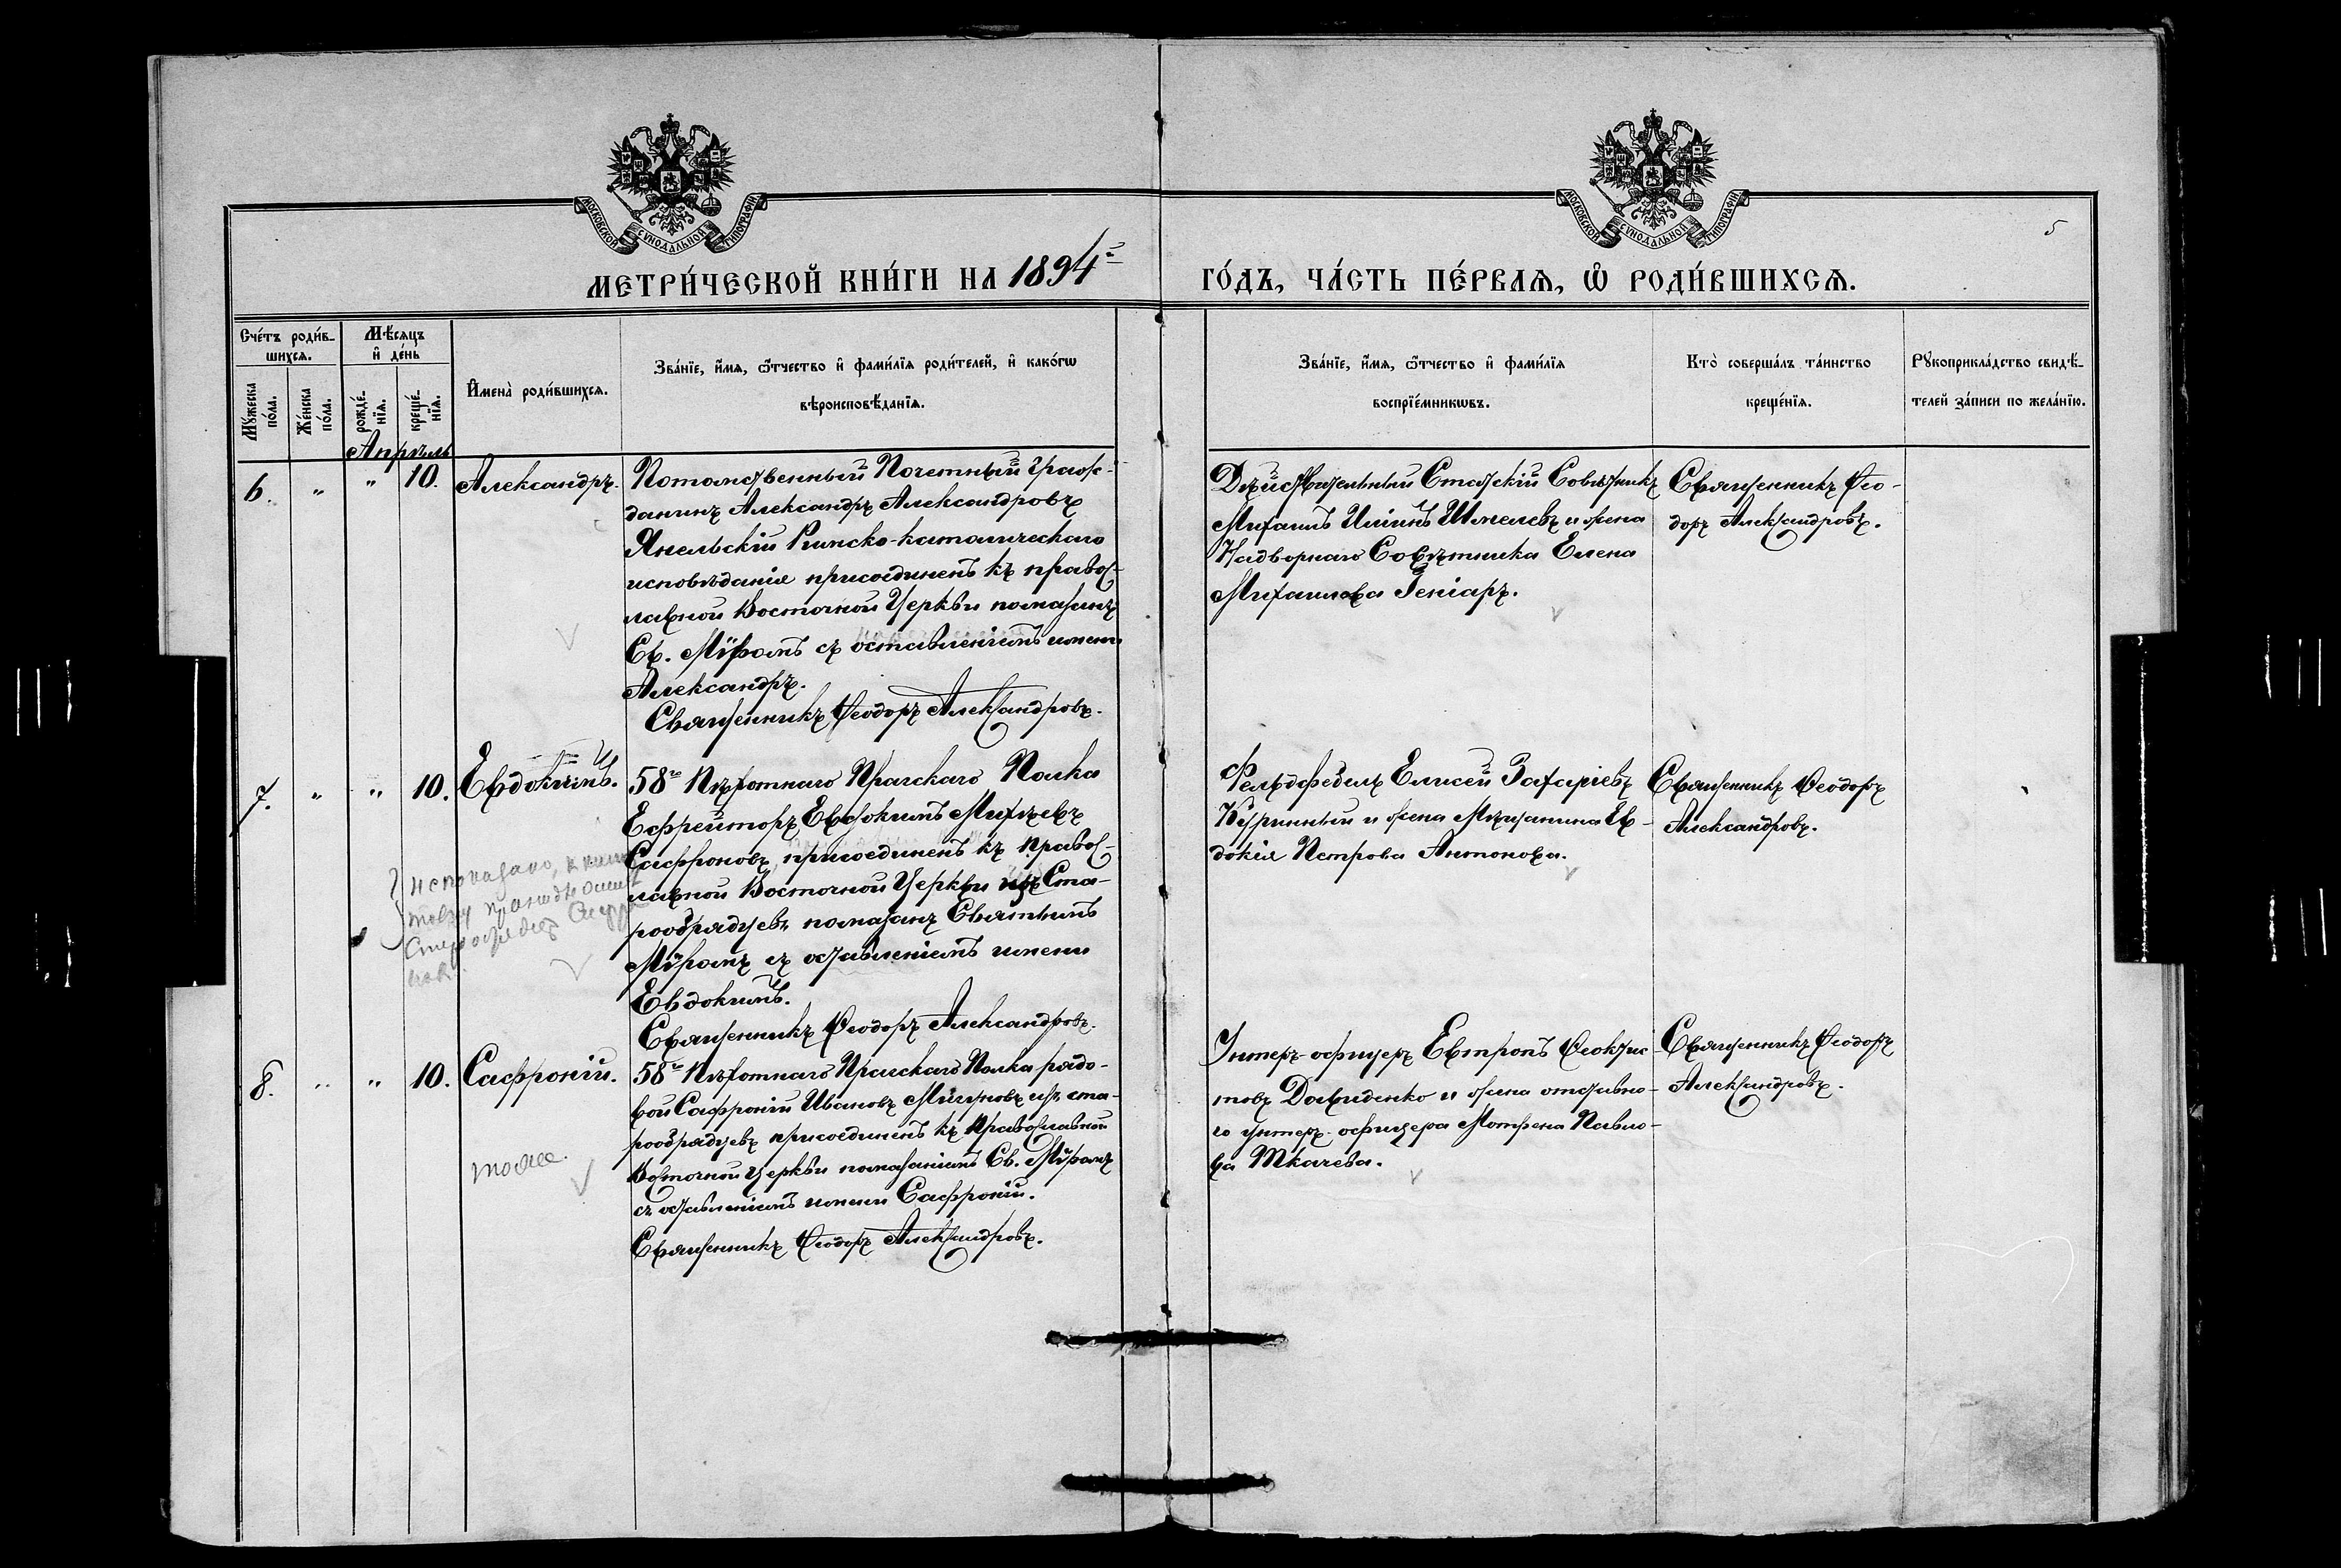 МОСКОВСКОЙ СУНОДАЛЬНОЙ ТИПОГРАФІИ
МОСКОВСКОЙ СУНОДАЛЬНОЙ ТИПОГРАФІИ
5
МЕТРИ́ЧЕСКОЙ КНИ́ГИ НА 1894й
ГО́ДЪ, ЧА́СТЬ ПЕ́РВАѦ, Ѡ҆ РОДИ́ВШИХСѦ.
Сче́тъ роди́в-
шихсѧ.
Мꙋ́жеска по́ла.
Же́нска по́ла.
Мѣ́сѧцъ
и҆ де́нь
рожде́-нїѧ.
креще́-нїѧ.
И҆мена̀ роди́вшихсѧ.
Зва́нїе, и҆́мѧ, ѻ҆́тчество и҆ фами́лїѧ роди́телей, и҆ како́гѡ
вѣроисповѣ́данїѧ.
Зва́нїе, и҆́мѧ, ѻ҆́тчество и҆ фами́лїѧ
воспрїе́мникѡвъ.
Кто̀ соверша́лъ та́инство
креще́нїѧ.
Рꙋкоприкла́дство свидѣ́-
телей за́писи по жела́нїю.
Апрѣль
6. " " 10. Александръ.
Потомственный Почетный Граж-
данинъ Александръ Александровъ
Янельскій Римско-католическаго
исповѣданія присоединенъ къ правос-
лавной Восточной Церкви помазанъ
Св. Мѵромъ съ оставленіемъ имени
Александръ.
Священникъ Ѳеодоръ Александровъ.
Дѣйствительный Статскій Совѣтникъ
Михаилъ Ильинъ Шмелевъ и жена
Надворнаго Совѣтника Елена
Михаилова
Священникъ Ѳео-
доръ Александровъ.
7. " " 10. Евдокимъ.
58го Пѣхотнаго Прагскаго Полка
Ефрейторъ Евдокимъ Михѣевъ
Сафроновъ, присоединенъ къ правос-
лавной Восточной Церкви изъ Ста-
рообрядцевъ помазанъ Святымъ
Мѵромъ съ оставленіемъ имени
Евдокимъ.
Священникъ Ѳеодоръ Александровъ.
не показано, к
Фельдфебель Елисей Захаріевъ
и жена Мѣщанина Ев-
докія Петрова Антонова.
Священникъ Ѳеодоръ
Александровъ.
8. " " 10. Сафроній.
тоже.
58го Пѣхотнаго Прагскаго Полка рядо-
вой Сафроній Ивановъ изъ ста-
рообрядцевъ присоединенъ къ Православной
Восточной церкви помазаніемъ Св. Мѵромъ
съ оставленіемъ имени Сафроній.
Священникъ Ѳеодоръ Александровъ.
Унтеръ-офицеръ Евтропъ Ѳеоктис-
товъ Давиденко и жена отставно-
го унтеръ-офицера Мотрена Павло-
ва Ткачева.
Священникъ Ѳеодоръ
Александровъ.